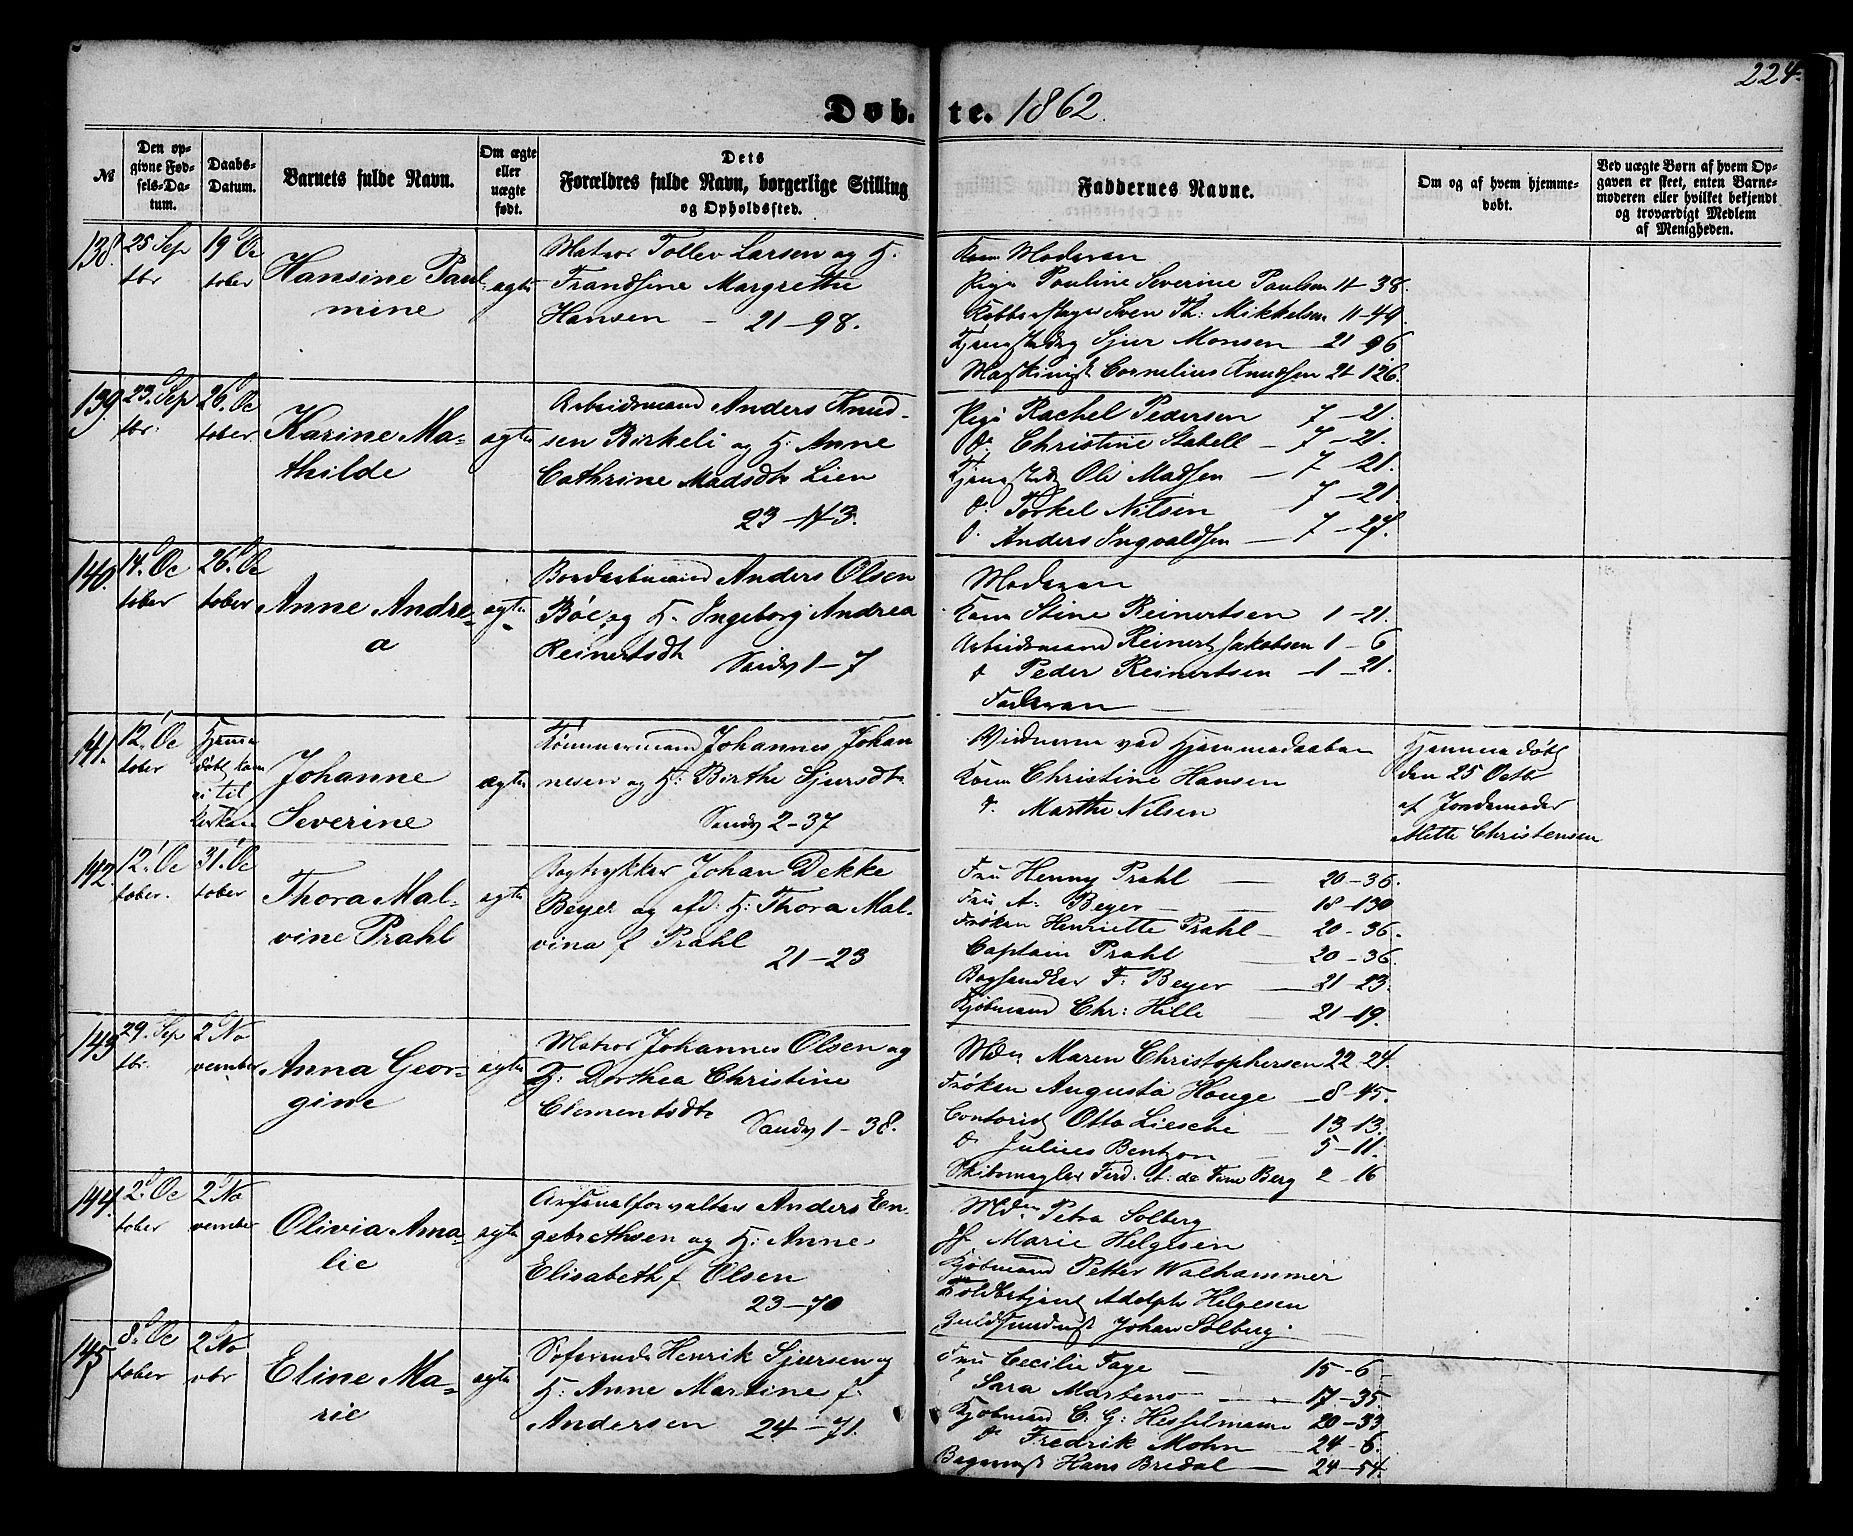 224.
Døb- te. 1862.
№
Den op-
givne Fød-
sels-Da-
tum.
Daabs-
Datum.
Barnets fulde Navn.
Om ægte
eller
uægte
født.
Dets
Forældres fulde Navn, borgerlige Stilling
og Opholdssted.
Faddernes Navne.
Om og af hvem hjemme-
døbt.
Ved uægte Børn af hvem Op-
gaven er skeet, enten Barne-
moderen eller hvilket bekjendt
og troværdigt Medlem
af Menigheden.
138.
25 Sep
tbr
19 Oc
tober
Hansine Paul
mine
ægte
Matros Tollev Larsen og H.
Frandsine Margrethe
Hansen – 21–98.
Kone Moderen
Pige Pauline Severine Paulsen 11–38.
Sven Th: Mikkelsen 11–49.
Sjur Monsen 21 96
Maskinist Cornelius Knudsen 24 126.
139.
23. Sep
tbr.
26. Oc
tober
Karine Ma-
thilde
ægte
Arbeidsmand Anders Knud-
sen Birkeli og H: Anne
Cathrine Madsdtr Lien
23–113.
Pige Rachel Pedersen 7–21.
do Christine Stabell – 7–21.
Ole Madsen – 7–21.
do Torkel Nilsen 7–21
do Anders Ingvaldsen – 7–27.
140.
14. Oc
tober
26. Oc
tober
Anne Andre-
a
ægte
Anders Olsen
Bøe og H. Ingeborg Andrea
Reinertsdtr Sandv 1–7
Moderen
Kone Stine Reinertsen 1–21.
Arbeidsmand Reinert Jakobsen 1–6
do Peder Reinertsen –1–21.
Faderen –
141.
12. Oc
tober
Hjemme
døbt kom
ei til
Kirken
Johanne
Severine
ægte
Tømmermand Johannes Johan
nesen og H: Birthe Sjursdtr
Sandv 2–37
Vidnerne ved Hjemmedaaben
Kone Christine Hansen
do Marthe Nilsen
Hjemme døbt
den 25 Octbr
af Jordemoder
Mette Christensen
142.
12. Oc
tober.
31. Oc
tober
Thora Mal-
vine Prahl
ægte
Bogtrykker Johan Dekke
Beyer og afd: H: Thora Mal-
vina f Prahl
21–23
Fru Henny Prahl – 20–36.
Fru A. Beyer – 18–130
Frøken Henriette Prahl – 20–36.
Captain Prahl – 20–36.
Boghandler F: Beyer – 21–23.
Kjøbmand Chr: Hille – 21–19.
143
29. Sep
tbr.
2 No
vember
Anna Geor-
gine
ægte
Matros Johannes Olsen og
H: Dorthea Christine
Clementsdtr
Sandv 1–38.
Mdm Maren Christophersen 22–24.
Frøken Augusta Hauge –8–45.
Contorist Otto Liesche – 13–13.
do Julius Bentzon – 5–11.
Skibsmægler Ferd: A: de Fine Berg 2–16
144.
2. Oc
tober
2 No
vember
Olivia Ama-
lie
ægte
Arsenalforvalter Anders En-
gebrethsen og H: Anne
Elisabeth f Olsen
23–70
Mdm Petra Solberg
Jf Marie Helgesen
Kjøbmand Petter Walhammer
Toldbetjent Adolph Helgesen
Johan Solberg. –
145
8. Oc
tober
2 No
vbr
Eline Ma-
rie
ægte
Søfarende Henrik Sjursen og
H: Anne Martine f.
Andersen 24–71.
Fru Cecilie Faye – 15–6
" Sara Martens – 17–35.
Kjøbmand C. G: Hesselmann 20–33
do Fredrik Mohn – 24–6.
Hans Bredal – 24–54.